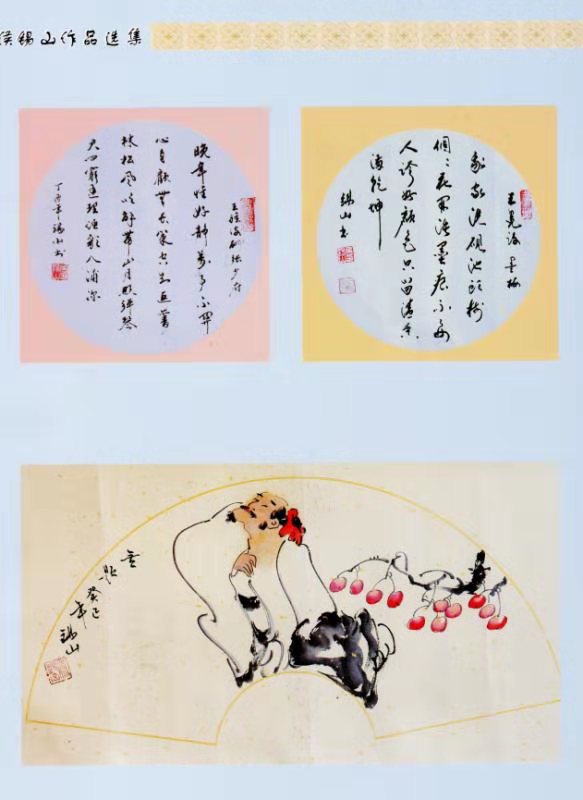 侯锡山作品选集
王维诗 酬张少府
晚年惟好静万事不関
心自顾无长策空知返旧
林松风吹解带山月照弹琴
君问穷通理渔歌入浦深
丁酉年锡山书
王冕诗 墨梅
我家洗砚池头树
個々花开淡墨痕不要
人誇好颜色只留清气
满乾坤
锡山书
癸巳
年
锡山